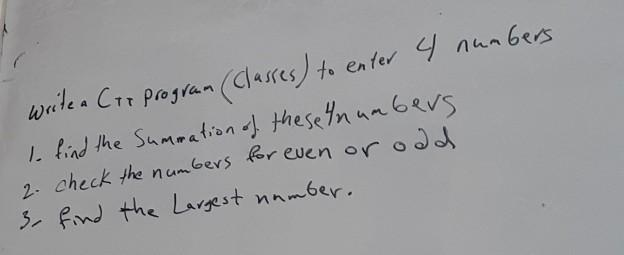 Write a C++ program (Classes) to enter 4 numbers
1. find the Summation of these 4 numbers
2. check the numbers for even or odd
3- find the Largest number.